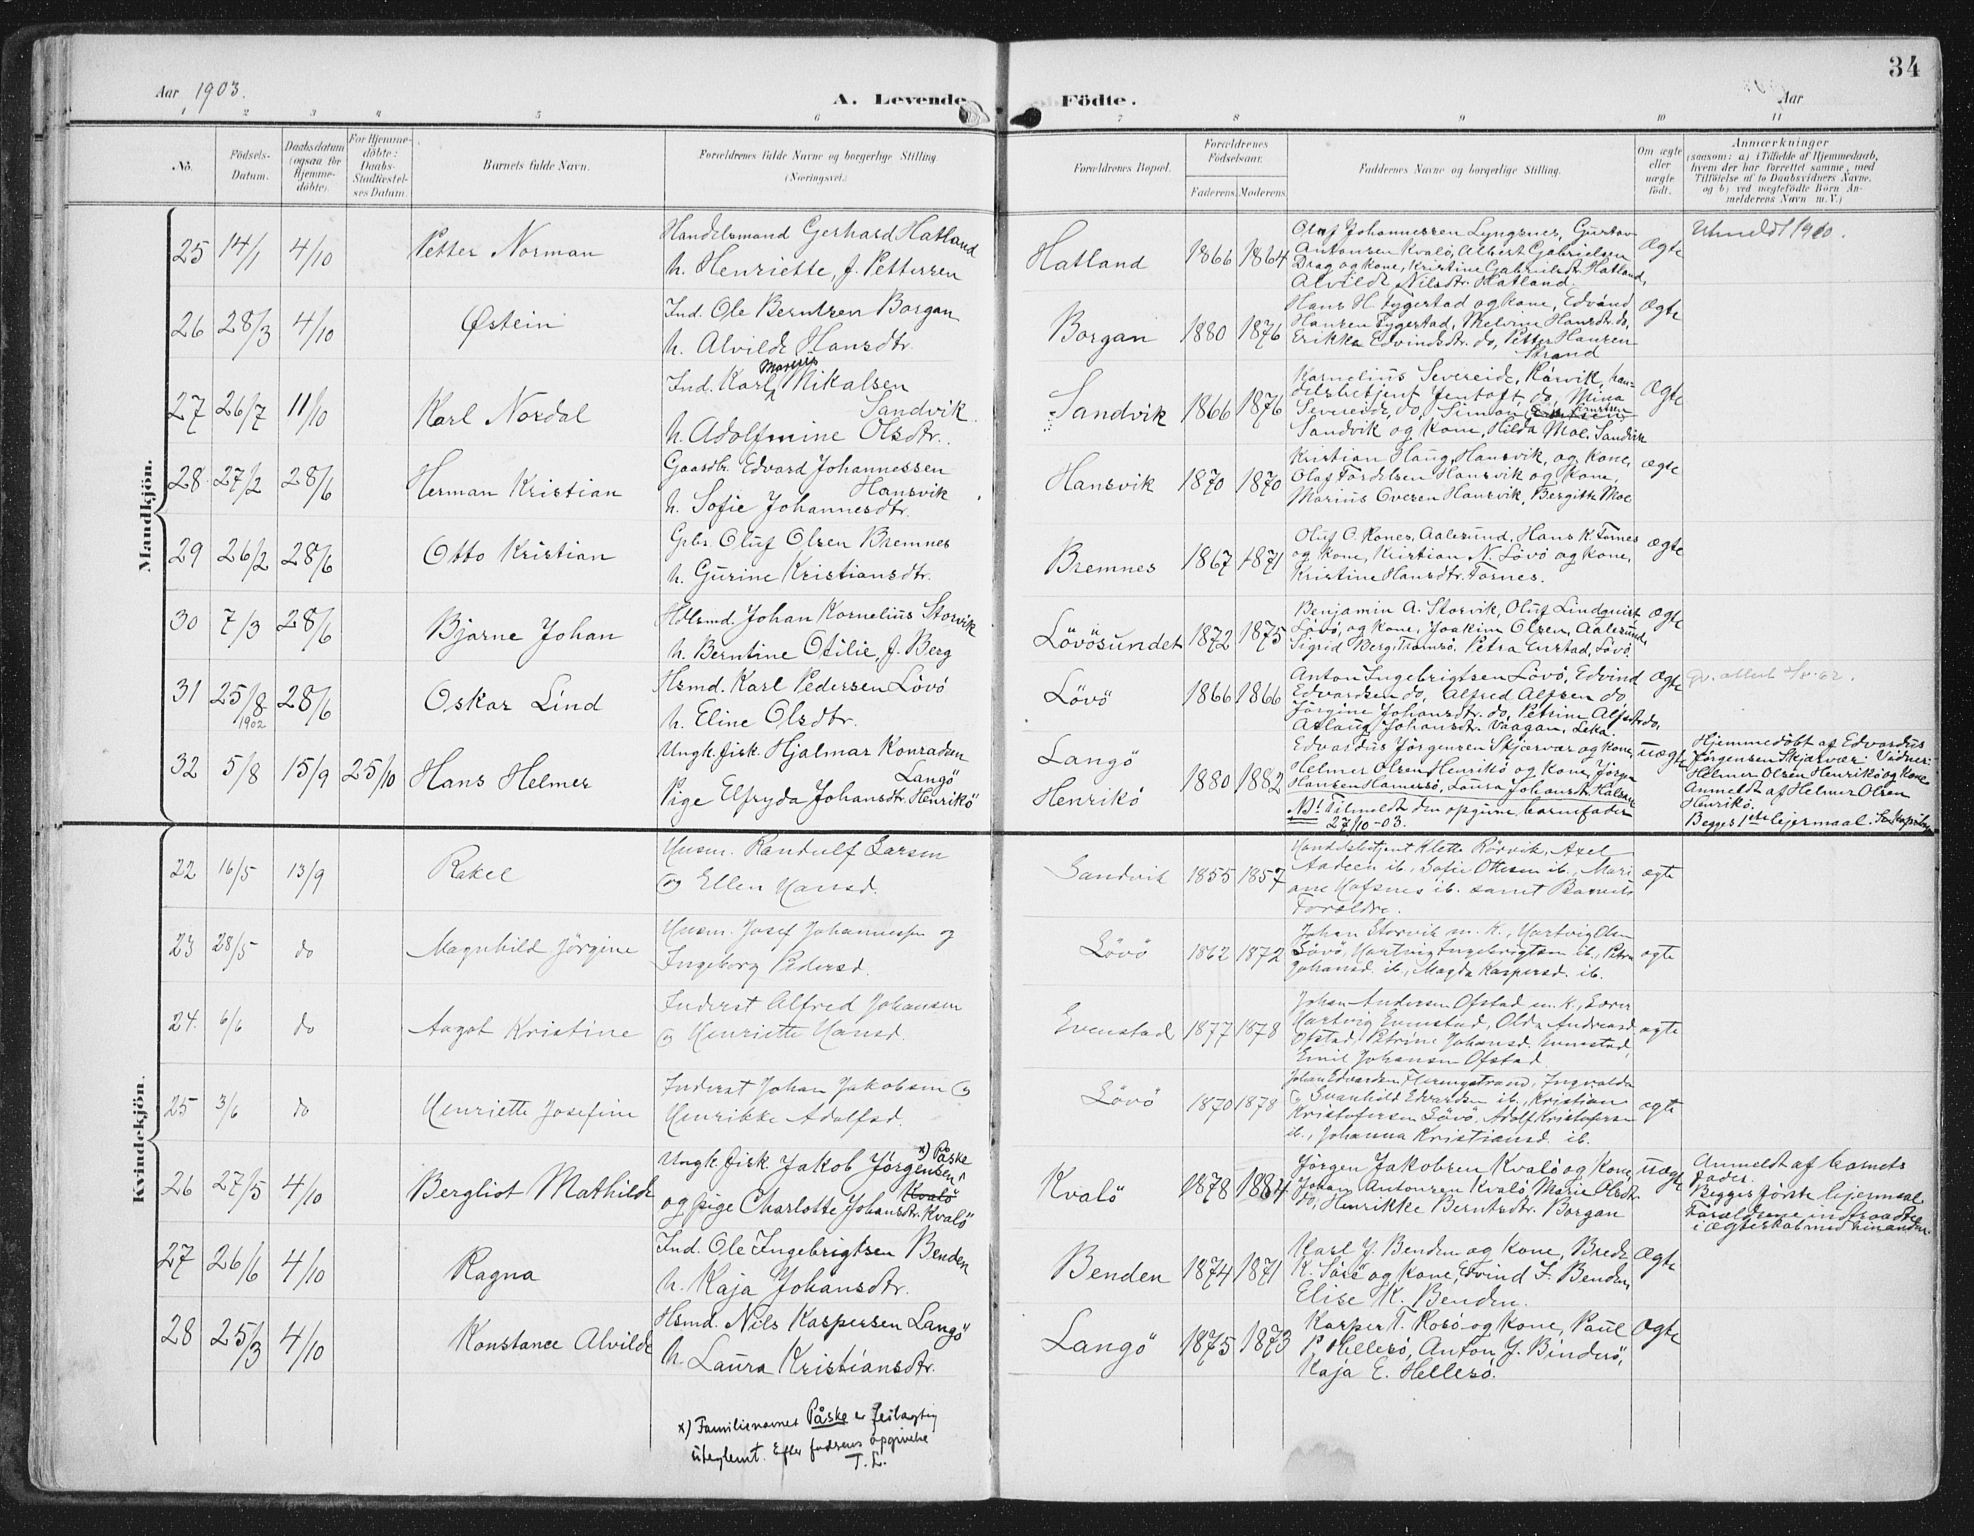 34
Aar 1903.
A. Levende
Födte.
Aar
1 2 3 4 5 6
7 8 9 10 11
No.
Födsels-Datum.
Daabsdatum (ogsaa for Hjemme-döbte).
For Hjemme-döbte: Daabs-Stadfæstel-ses Datum.
Barnets fulde Navn.
Forældrenes fulde Navne og borgerlige Stilling. (Næringsvei.)
Forældrenes Bopæl.
Forældrenes Födselsaar.
Faderens. Moderens.
Faddernes Navne og borgerlige Stilling.
Om ægte eller uægte födt.
Anmærkninger
(saasom: a) i Tilfælde af Hjemmedaab, hvem der har forrettet samme, med Tilföielse af to Daabsvidners Navne, og b) ved uægtefödte Börn Anmelderens Navn m. V.)
Mandkjön.
25 14/1 4/10 Petter Norman
Handelsmand Gerhard Hatland
h. Henriette, f. Pettersen
Hatland 1866 1864
Olaf Johannessen Lyngsnes, Gustav
Antonsen Kvalö, Albert Gabrielsen
Drag og kone, Kristine Gabrielsdtr. Hatland,
Alvilde Nilsdtr. Hatland.
Ægte
Utmeldt 1910.
26 28/3 4/10 Østein
Ind. Ole Berntsen Borgan
h. Alvilde Hansdtr.
Borgan 1880 1876
Hans H. Fygestad og kone, Edvind
Hansen Fygestad, Melvine Hansdtr. do,
Erikka Edvindsdtr. do, Petter Hansen
Strand
Ægte
27 26/7 11/10 Karl Nordal
Ind. Karl Marius Mikalsen
Sandvik
h. Adolfmine Olsdtr.
Sandvik 1866 1876
Kornelius Severeide, Rörvik, han-
delsbetjent Jentoft do, Mina
Severeide do, Simon
Sandvik og kone, Hilda Moe, Sandvik
Ægte
28 27/2 28/6 Herman Kristian
Gaardbr. Edvard Johannessen
Hansvik
h. Sofie Johannesdtr.
Hansvik 1870 1870
Kristian Haug, Hansvik, og kone,
Olaf Hansvik og kone,
Marius Ovesen Hansvik, Bergitte Moe
Ægte
29 26/2 28/6 Otto Kristian
Gbr. Oluf Olsen Bremnes
h. Gurine Kristiansdtr.
Bremnes 1867 1871
Oluf O. Rones, Aalesund, Hans K Tornes
og kone, Kristian N. Lövö og kone,
Kristine Hansdtr. Tornes.
Ægte
30 7/3 28/6 Bjarne Johan
Hdlsmd. Johan Kornelius Storvik
h. Berntine Otilie, f. Berg
Lövösundet 1872 1875
Benjamin A. Storvik, Oluf Lindquist
Lövö, og kone, Joakim Olsen, Aalesund,
Sigrid Berg, Tromsö, Petra Lövö.
Ægte
31 25/8 1902 28/6 Oskar Lind
Hsmd. Karl Pedersen Lövö
h. Eline Olsdtr.
Lövö 1866 1866
Anton Ingebrigtsen Lövö, Edvind
Edvardsen do, Alfred Alfsen do,
Jörgine Johansdtr. do, Petrine Alfsdtr. do,
Aslaug Johansdtr. Vaagan, Leka.
Ægte
32 5/8 15/9 25/10 Hans Helmer
Ungk. fisk. Hjalmar Konradsen
Langö
Pige Elfryda Johansdtr. Henrikö
Langö
Henrikö
1880 1882
Edvardus Jörgensen Skjærvær og kone,
Helmer Olsen Henrikö og kone, Jörgen
Hansen Laura Johansdtr.
NB! Tilmeldt den opgivne barnefader
27/10-03.
uægte
Hjemmedöbt af Edvardus
Jörgensen Skjærvær. Vidner:
Helmer Olsen Henrikö og Kone
Anmeldt af Helmer Olsen
Henrikö.
Begges 1ste leiermaal.
Kvindekjön.
22 16/5 13/9 Rakel
Husm. Randulf Larsen
og Ellen Hansd.
Sandvik 1855 1857
Handelsbetjent Klette Rörvik, Axel
Aadeen ib. Sofie Ottesen ib., Mari-
ane Hafsnes ib. samt Barnets
Forældre.
ægte
23 28/5 do Magnhild Jörgine
Husm. Josef Johannessen og
Ingeborg Pedersd.
Lövö 1862 1872
Johan Storvik m. K., Hartvig Olsen
Lövö, Hartvig Ingebrigtsen ib., Petra
Johansd. ib., Magda Kaspersd. ib.
ægte
24 6/6 do Aagot Kristine
Inderst Alfred Johansen
og Henriette Hansd.
Evenstad 1877 1878
Johan Andersen Ofstad m. K., Lærer
Hartvig Evenstad, Olda Andreasd.
Ofstad, Petrine Johansd. Evenstad,
Emil Johansen Ofstad.
ægte
25 3/6 do Henriette Josefine
Inderst Johan Jakobsen og
Henrikke Adolfsd.
Lövö 1870 1878
Johan Edvardsen Flerengstrand, Ingvalda
og Svanhild Edvardsen ib., Kristian
Kristofersen Lövö, Adolf Kristofersen
ib., Johanna Kristiansd. ib.
ægte
26 27/5 4/10 Bergliot Mathilde
Ungk. fisk. Jakob Jörgensen x) Påske
Kvalö
og pige Charlotte Johansdtr. Kvalö
Kvalö 1878 1884
Jörgen Jakobsen Kvalö og kone,
Johan Antonsen Kvalö, Marie Olsdtr.
do, Henrikke Berntsdtr. Borgan
uægte
Anmeldt af barnets
fader.
Begges förste leiermaal
Forældrene indtraadte
i ægteskab med hinanden
27 26/6 4/10 Ragna
Ind. Ole Ingebrigtsen Benden
h. Kaja Johansdtr.
Benden 1874 1871
Karl J. Benden og kone, Brede
K. Sörö og kone, Edvind J. Benden,
Elise K. Benden.
Ægte
28 25/3 4/10 Konstance Alvilde
Hsmd. Nils Kaspersen Langö
h. Laura Kristiansdtr.
Langö 1875 1873
Kasper T. Rosö og kone, Paul
P. Hellesö, Anton J. Bindesö,
Kaja E. Hellesö.
Ægte
x) Familienavnet Påske er feilagtig
uteglemt. Efter faderens opgivelse
T. L.